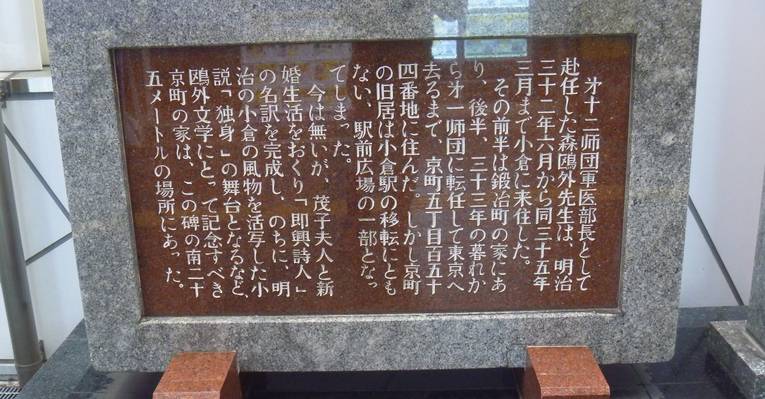 才十二師団軍医部長として
赴任した森鴎外先生は、明治
三十二年六月から同三十五年
三月まで小倉に来住した。
　その前半は鍛治町の家にあ
り、後半、三十三年の暮れか
ら才一師団に転任して東京へ
去るまで、京町五丁目百五十
四番地に住んだ。しかし京町
の旧居は小倉駅の移転にとも
ない、駅前広場の一部となっ
てしまった。
　今は無いが、茂子夫人と新
婚生活をおくり「即興詩人」
の名訳を完成し、のちに、明
治の小倉の風物を活写した小
説「独身」の舞台となるなど、
鴎外文学にとって記念すべき
京町の家は、この碑の南二十
五メートルの場所にあった。